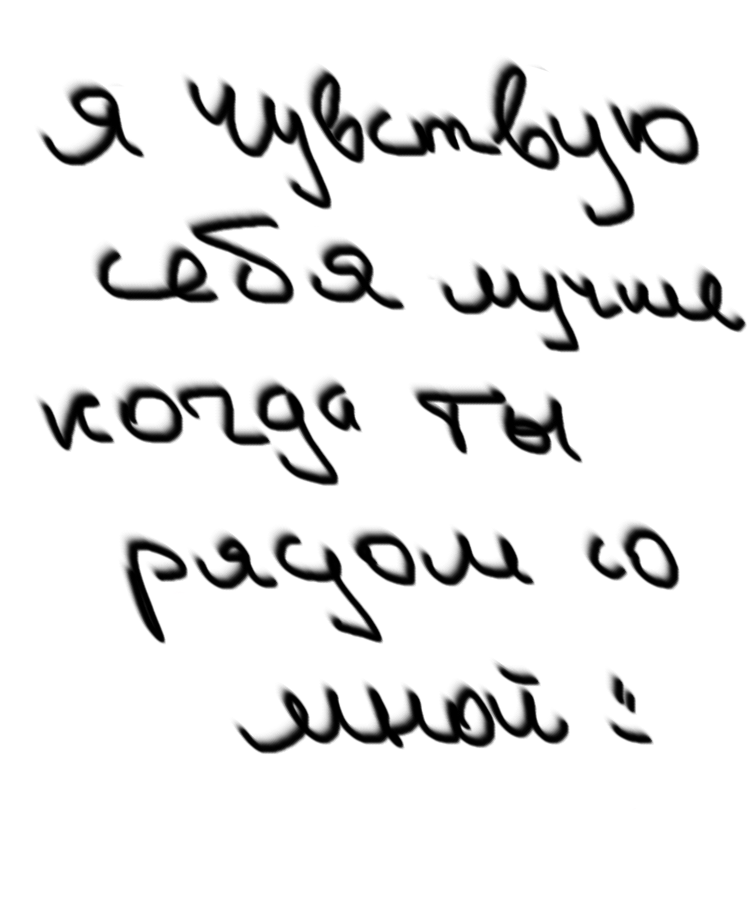 я чувствую
себя лучше
когда ты
рядом со
мной :)